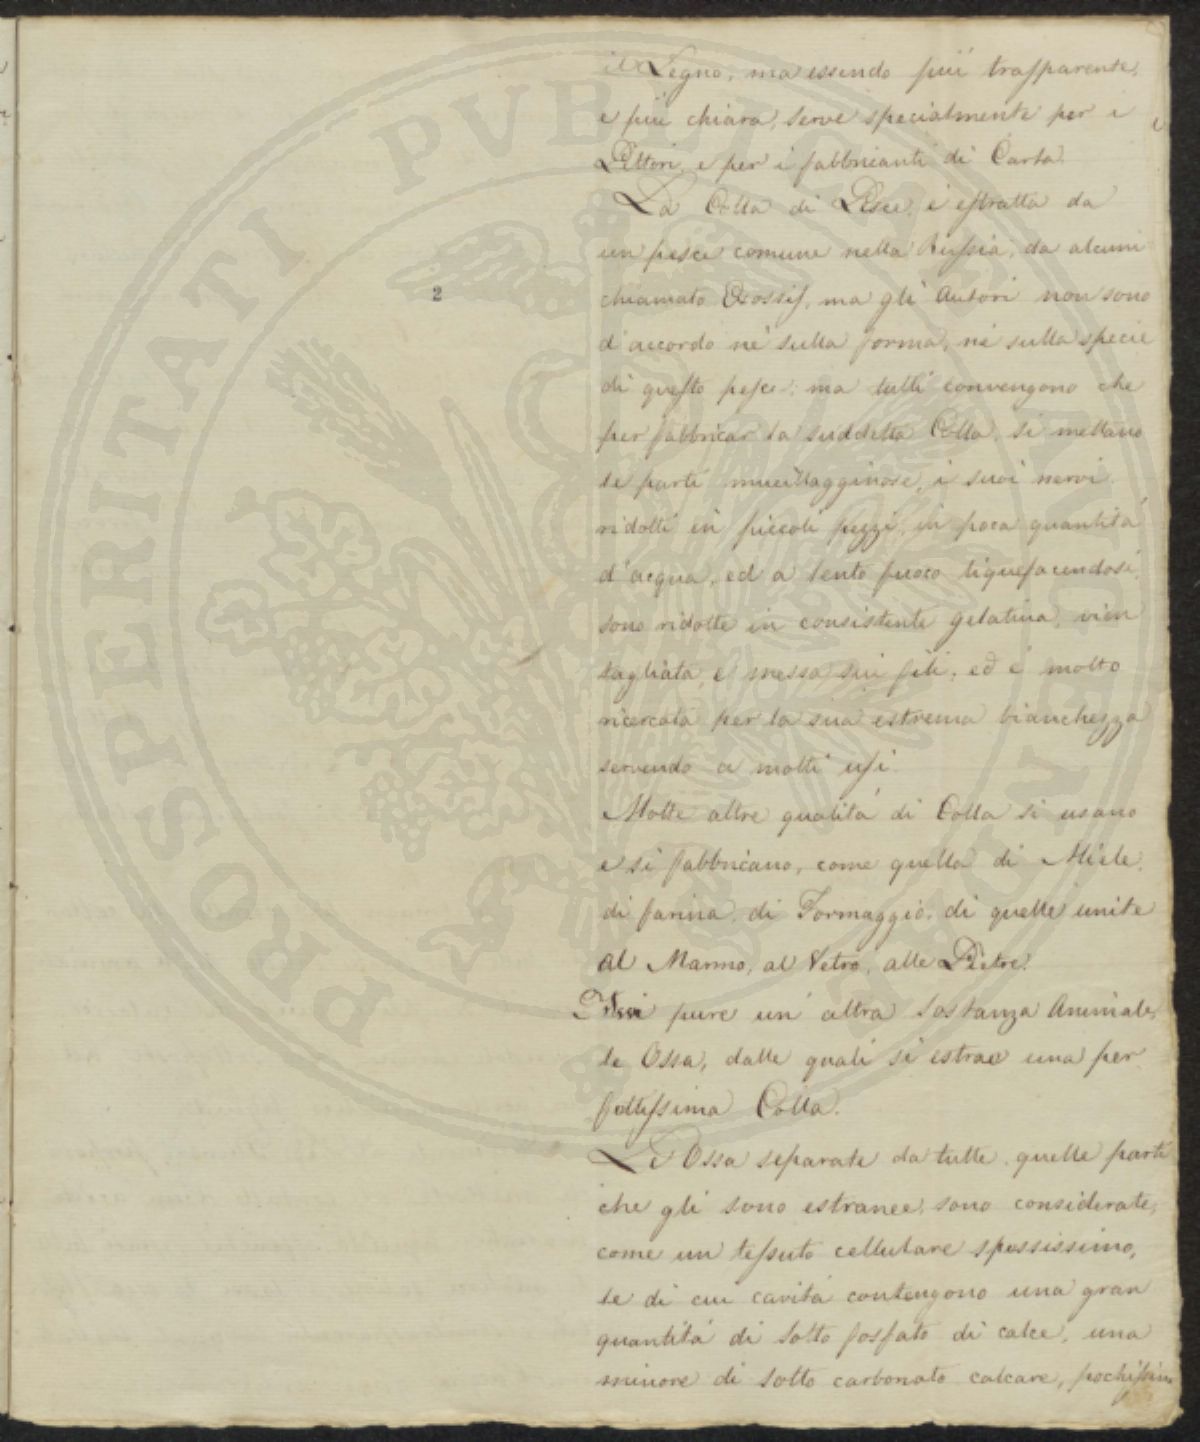 il Legno, ma essendo piú trasparente,
e piú chiara, serve specialmente per i
Pittori, e per i fabbricanti di Carta.
La Colla di Pesce, é estratta da
un pesce comune nella Russia, da alcuni
chiamato, ma gli Autori non sono
2
d'accordo né sulla forma, né sulla specie
di questo pesce: ma tutti convengono che
per fabbricar la suddetta Colla, si mettano
le parti mucillagginose, i suoi nervi
ridotti in piccoli pezzi, in poca quantitá
d'acqua, ed a lento fuoco liquefacendosi,
sono ridotte in consistente gelatina, vien
tagliata, e messa sui fili, ed é molto
ricercata per la sua estrema bianchezza
servendo a molti usi.
Molte altre qualitá di Colla si usano
e si fabbricano, come quella di Miele,
di farina, di Formaggio, di quelle unite
al Marmo, al Vetro, alle Pietre.
pure un'altra Sostanza Animale,
le Ossa, dalle quali si estrae una per
fettissima Colla.
Le Ossa separate da tutte quelle parti
che gli sono estranee, sono considerate,
come un tessuto cellulare spessissimo,
le di cui cavitá contengono una gran
quantitá di Sotto fosfato di calce, una
minore di Sotto carbonato calcare, pochissim
PROSPERITATI PVBLICAE